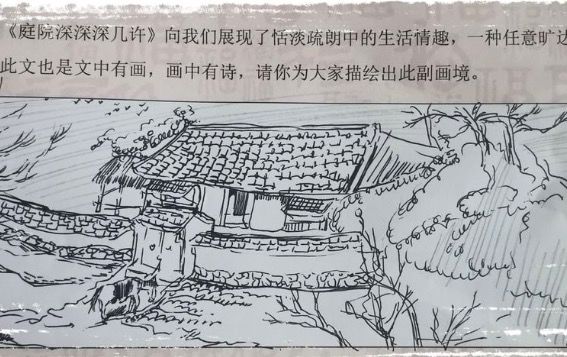 《庭院深深深几许》向我们展现了恬淡疏朗中的生活情趣，一种任意旷达
此文也是文中有画，画中有诗，请你为大家描绘出此副画境。